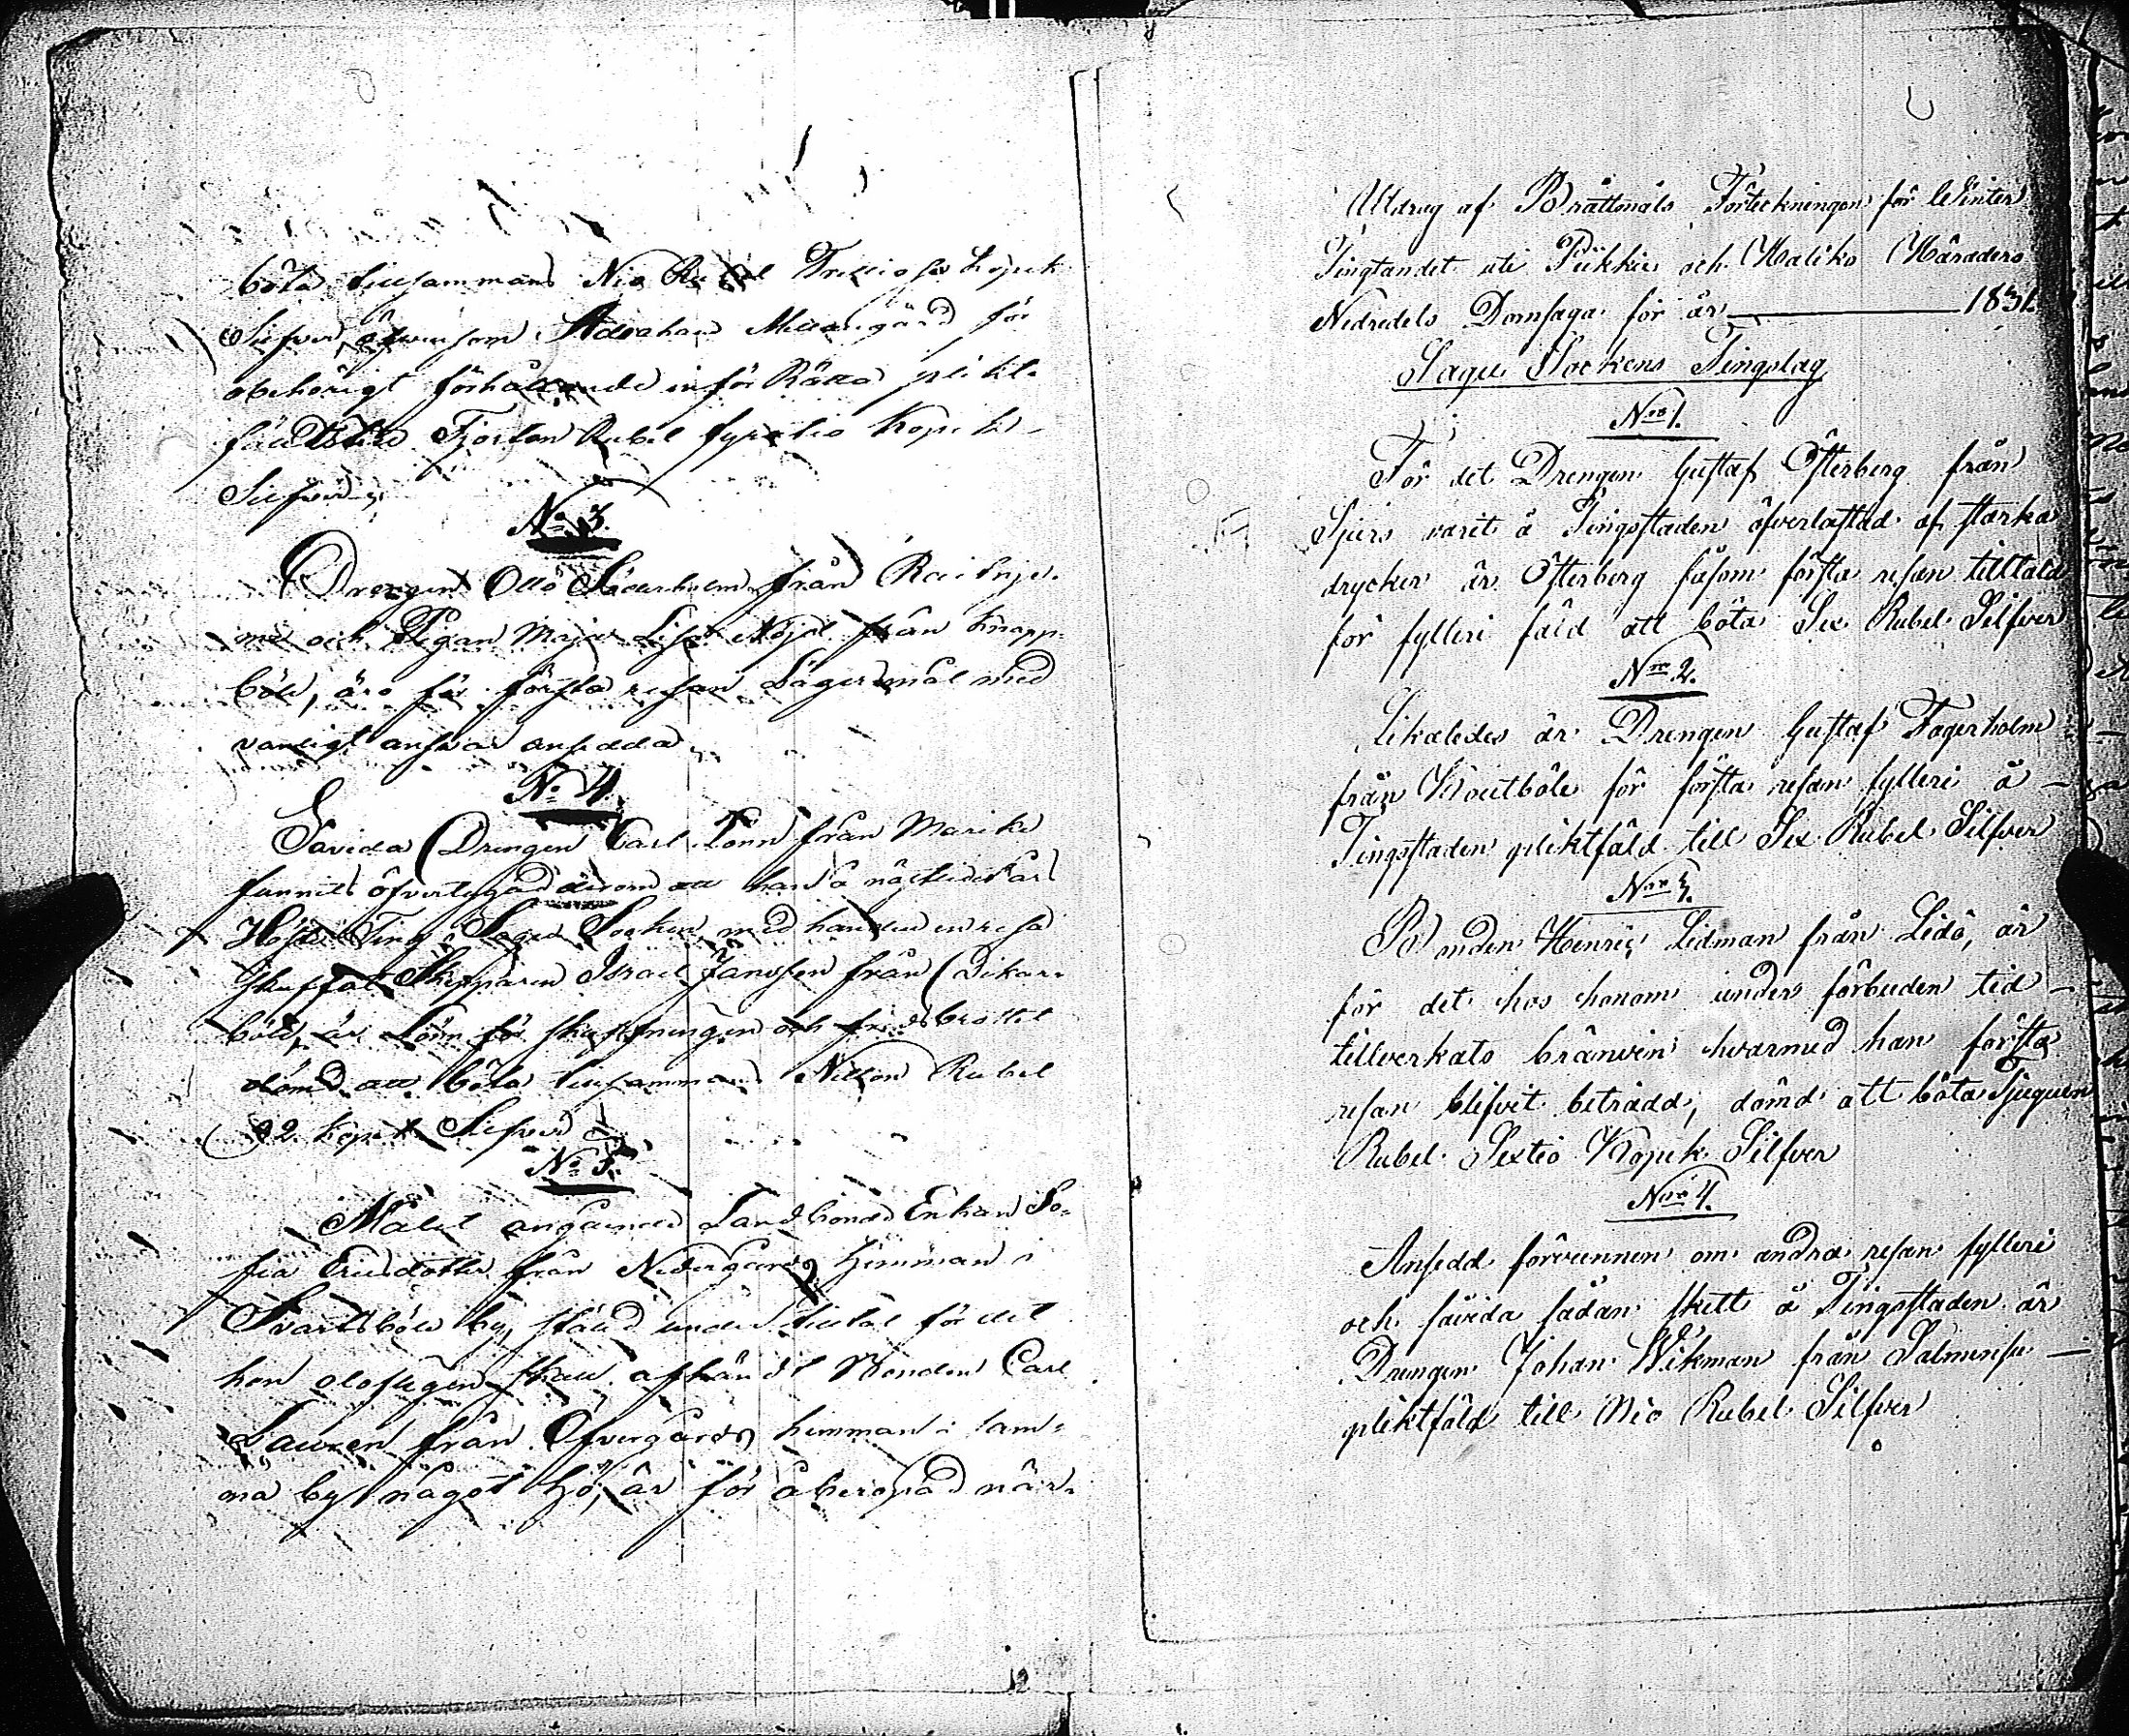 böta tillsammans Nio Rubel Trettiosex Kopek
Silfver, äfvensom Abraham Mellangård för
obehörigt förhållande inför Rätta plikt-
fälld till Fjorton Rubel fyratio Kopek
Silfver,
No 3.
Drengen Otto Söderholm från
och Pigan Maja Lisa Nöjd från Knapp-
böle, äro för första resan Lägersmål med
vanligt answar ansedda
No 4.
Såvida Drengen Carl Lönn från Marike
funnits öfvertygad derom att han å nästlidit års
Höste Ting i Sagu Socken med handen en resa
skuffat Skepparen Israel Jansson från Dikar-
böle, är Lönn för skuffningen och fridsbrottet
dömd att böta tillsammans Nitton Rubel
92 Kopek Silfver
No 5.
Målet angående Landbonde Enkan So-
fia Ericsdotter från Nedergårds hemman i
Svartsböle by, ställd under tilltal för det
hon olofligen skall afhändt Bonden Carl
Lauren från Öfvergårds hemman i sam-
ma by något hö, är för åberopad när-
Utdrag af Bråttmåls Förteckningen för Winter
Tingtandet uti Piikkie och Haliko Härads
Nedredels Domsaga för år 1831.
Sagu Sockens Tingslag
Nro 1.
För det Drengen Gustaf Österberg från
Spurs varit å Tingsstaden öfverlastad af starka
drycker är Österberg såsom första resan tilltald
för fylleri fäld att böta Sex Rubel Silfver
Nro 2.
Likaledes är Drengen Gustaf Fagerholm
från Koutböle för första resan fylleri å –
Tingsstaden pliktfäld till Sex Rubel Silfver
Nro 3.
Bonden Henric Lidman från Lidö, är
för det hos honom under förbuden tid –
tillverkats bränvin hvarmed han första
resan blifvit beträdd, dömd att böta Tjuguen
Rubel Sextio Kopek Silfver
Nro 4.
Ansedd förvunnen om andra resan fylleri
och såvida sådan skett å Tingsstaden är
Drengen Johan Wikman från Salmense —
pliktfäld till Nio Rubel Silfver